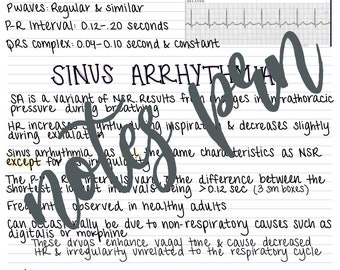 P waves: Regular & similar
P-R Interval: 0.12-.20 seconds
QRS complex: 0.04-0.10 second & constant
SINUS ARRHYTHMIA
SA is a variant of NSR. Results from changes in intrathoracic
pressure during breathing
HR increases slightly during inspiration & decreases slightly
during exhalation
sinus arrhythmia has same characteristics as NSR
except for irregularity
The P-P R-R intervals vary the difference between the
shortest & longest intervals being >0.12 sec (3 sm boxes)
Frequently observed in healthy adults
Can occasionally be due to non-respiratory causes such as
digitalis or morphine
These drugs enhance vagal tone & cause decreased
HR & irregularity unrelated to the respiratory cycle
notes pern